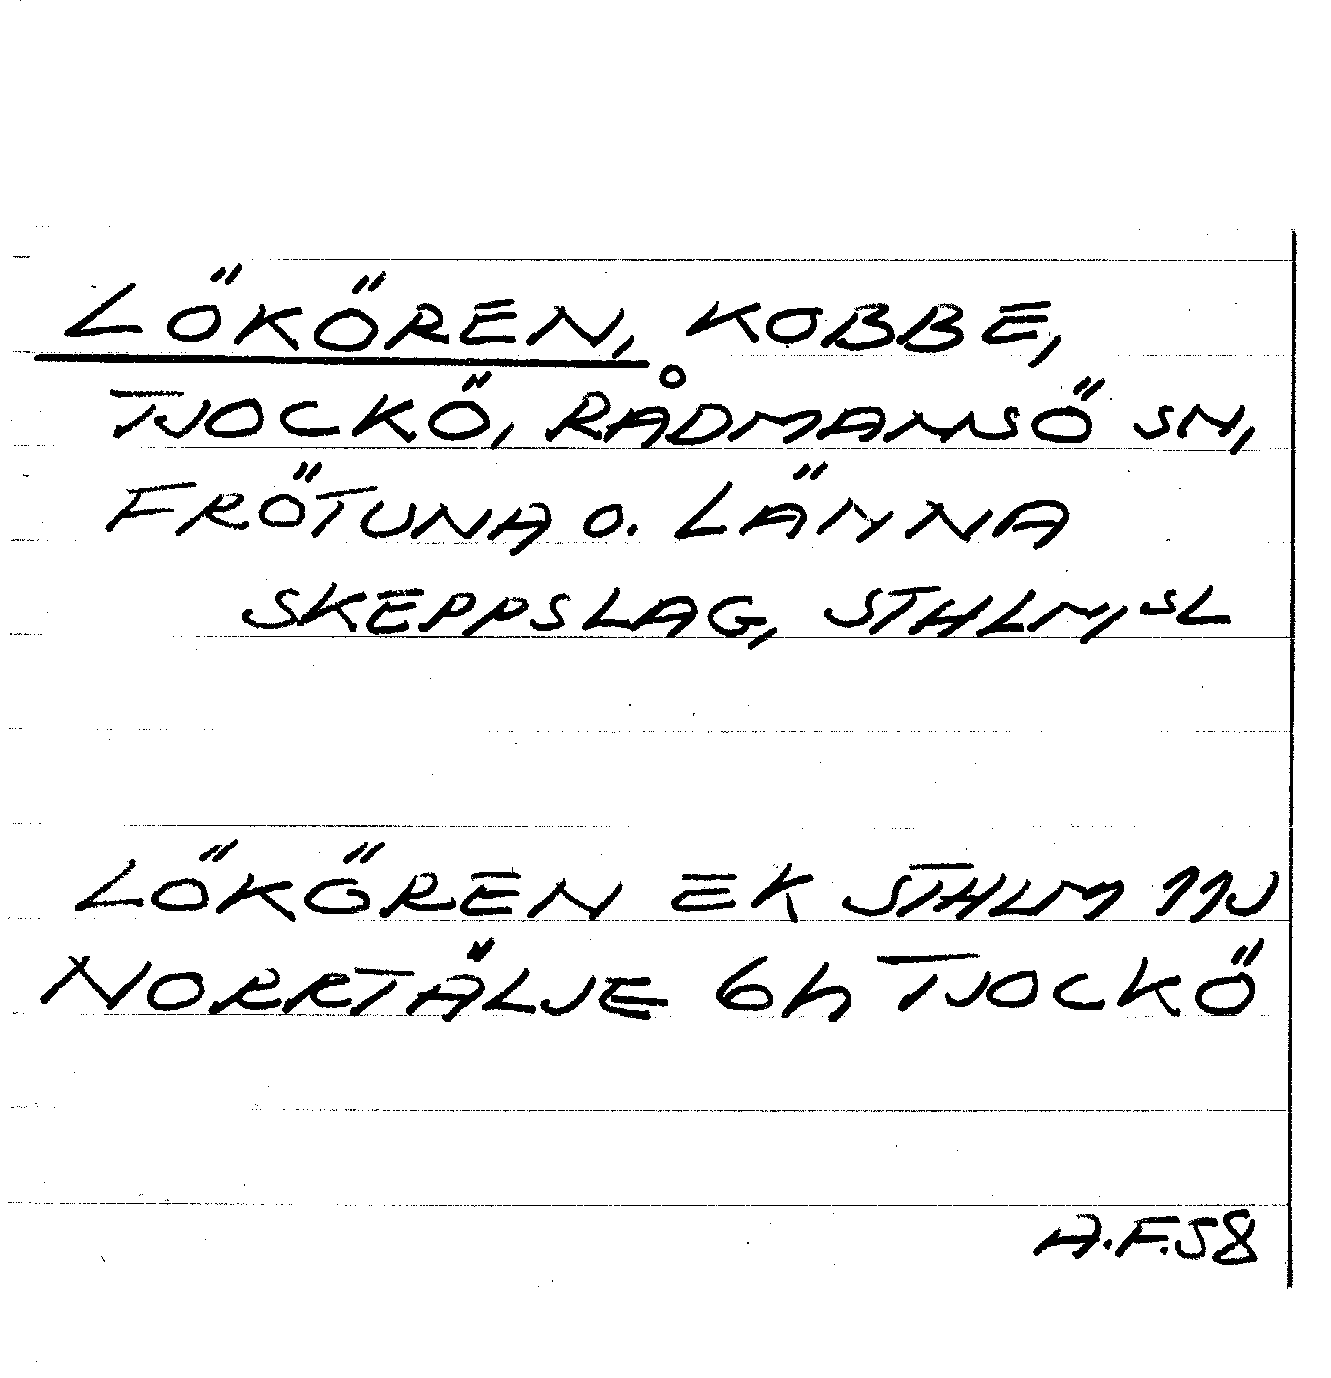 LÖKÖREN, KOBBE,
TJOCKÖ, RÅDMANSÖ SN,
FRÖTUNA O. LÄNNA
SKEPPSLAG, STHLM, SL
LÖKÖREN EK STHLM 11NJ
NORRTÄLJE 6h TJOCKÖ
A.F.58